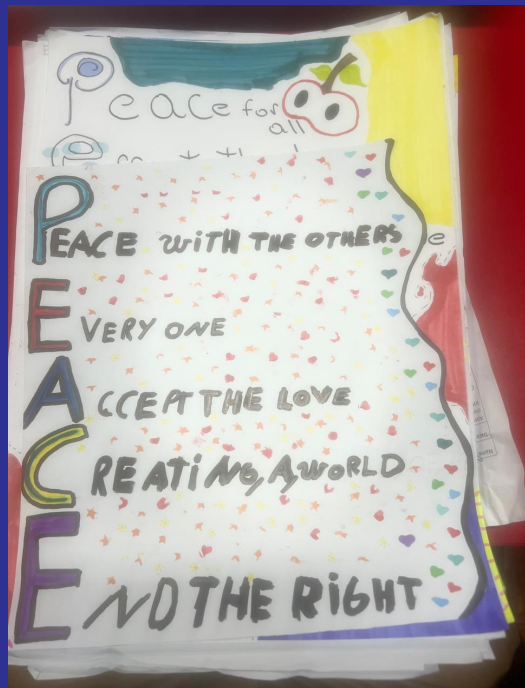 Peace for
all
PEACE WiTH THE OTHERS
e
EVERY ONE
ACCEPT THE LOVE
CREATiNG,A,WORLD
END THE RiGHT